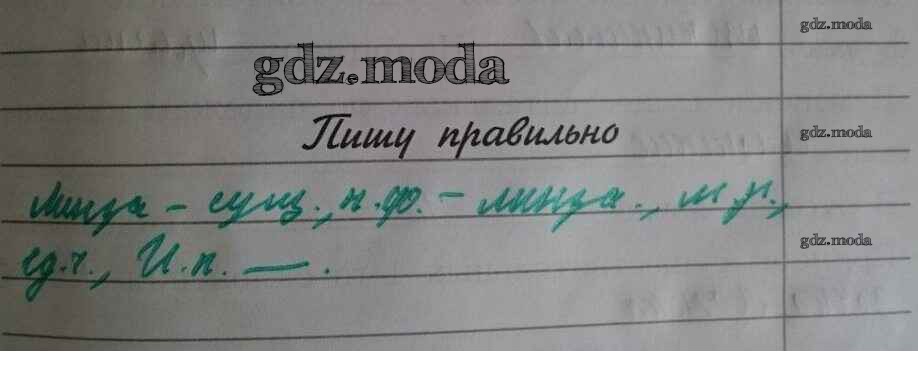 gdz.moda
gdz.moda
Пишу правильно
gdz.moda
– сущ., н.ф. – м.р.,
ед.ч., И.п. — .
gdz.moda